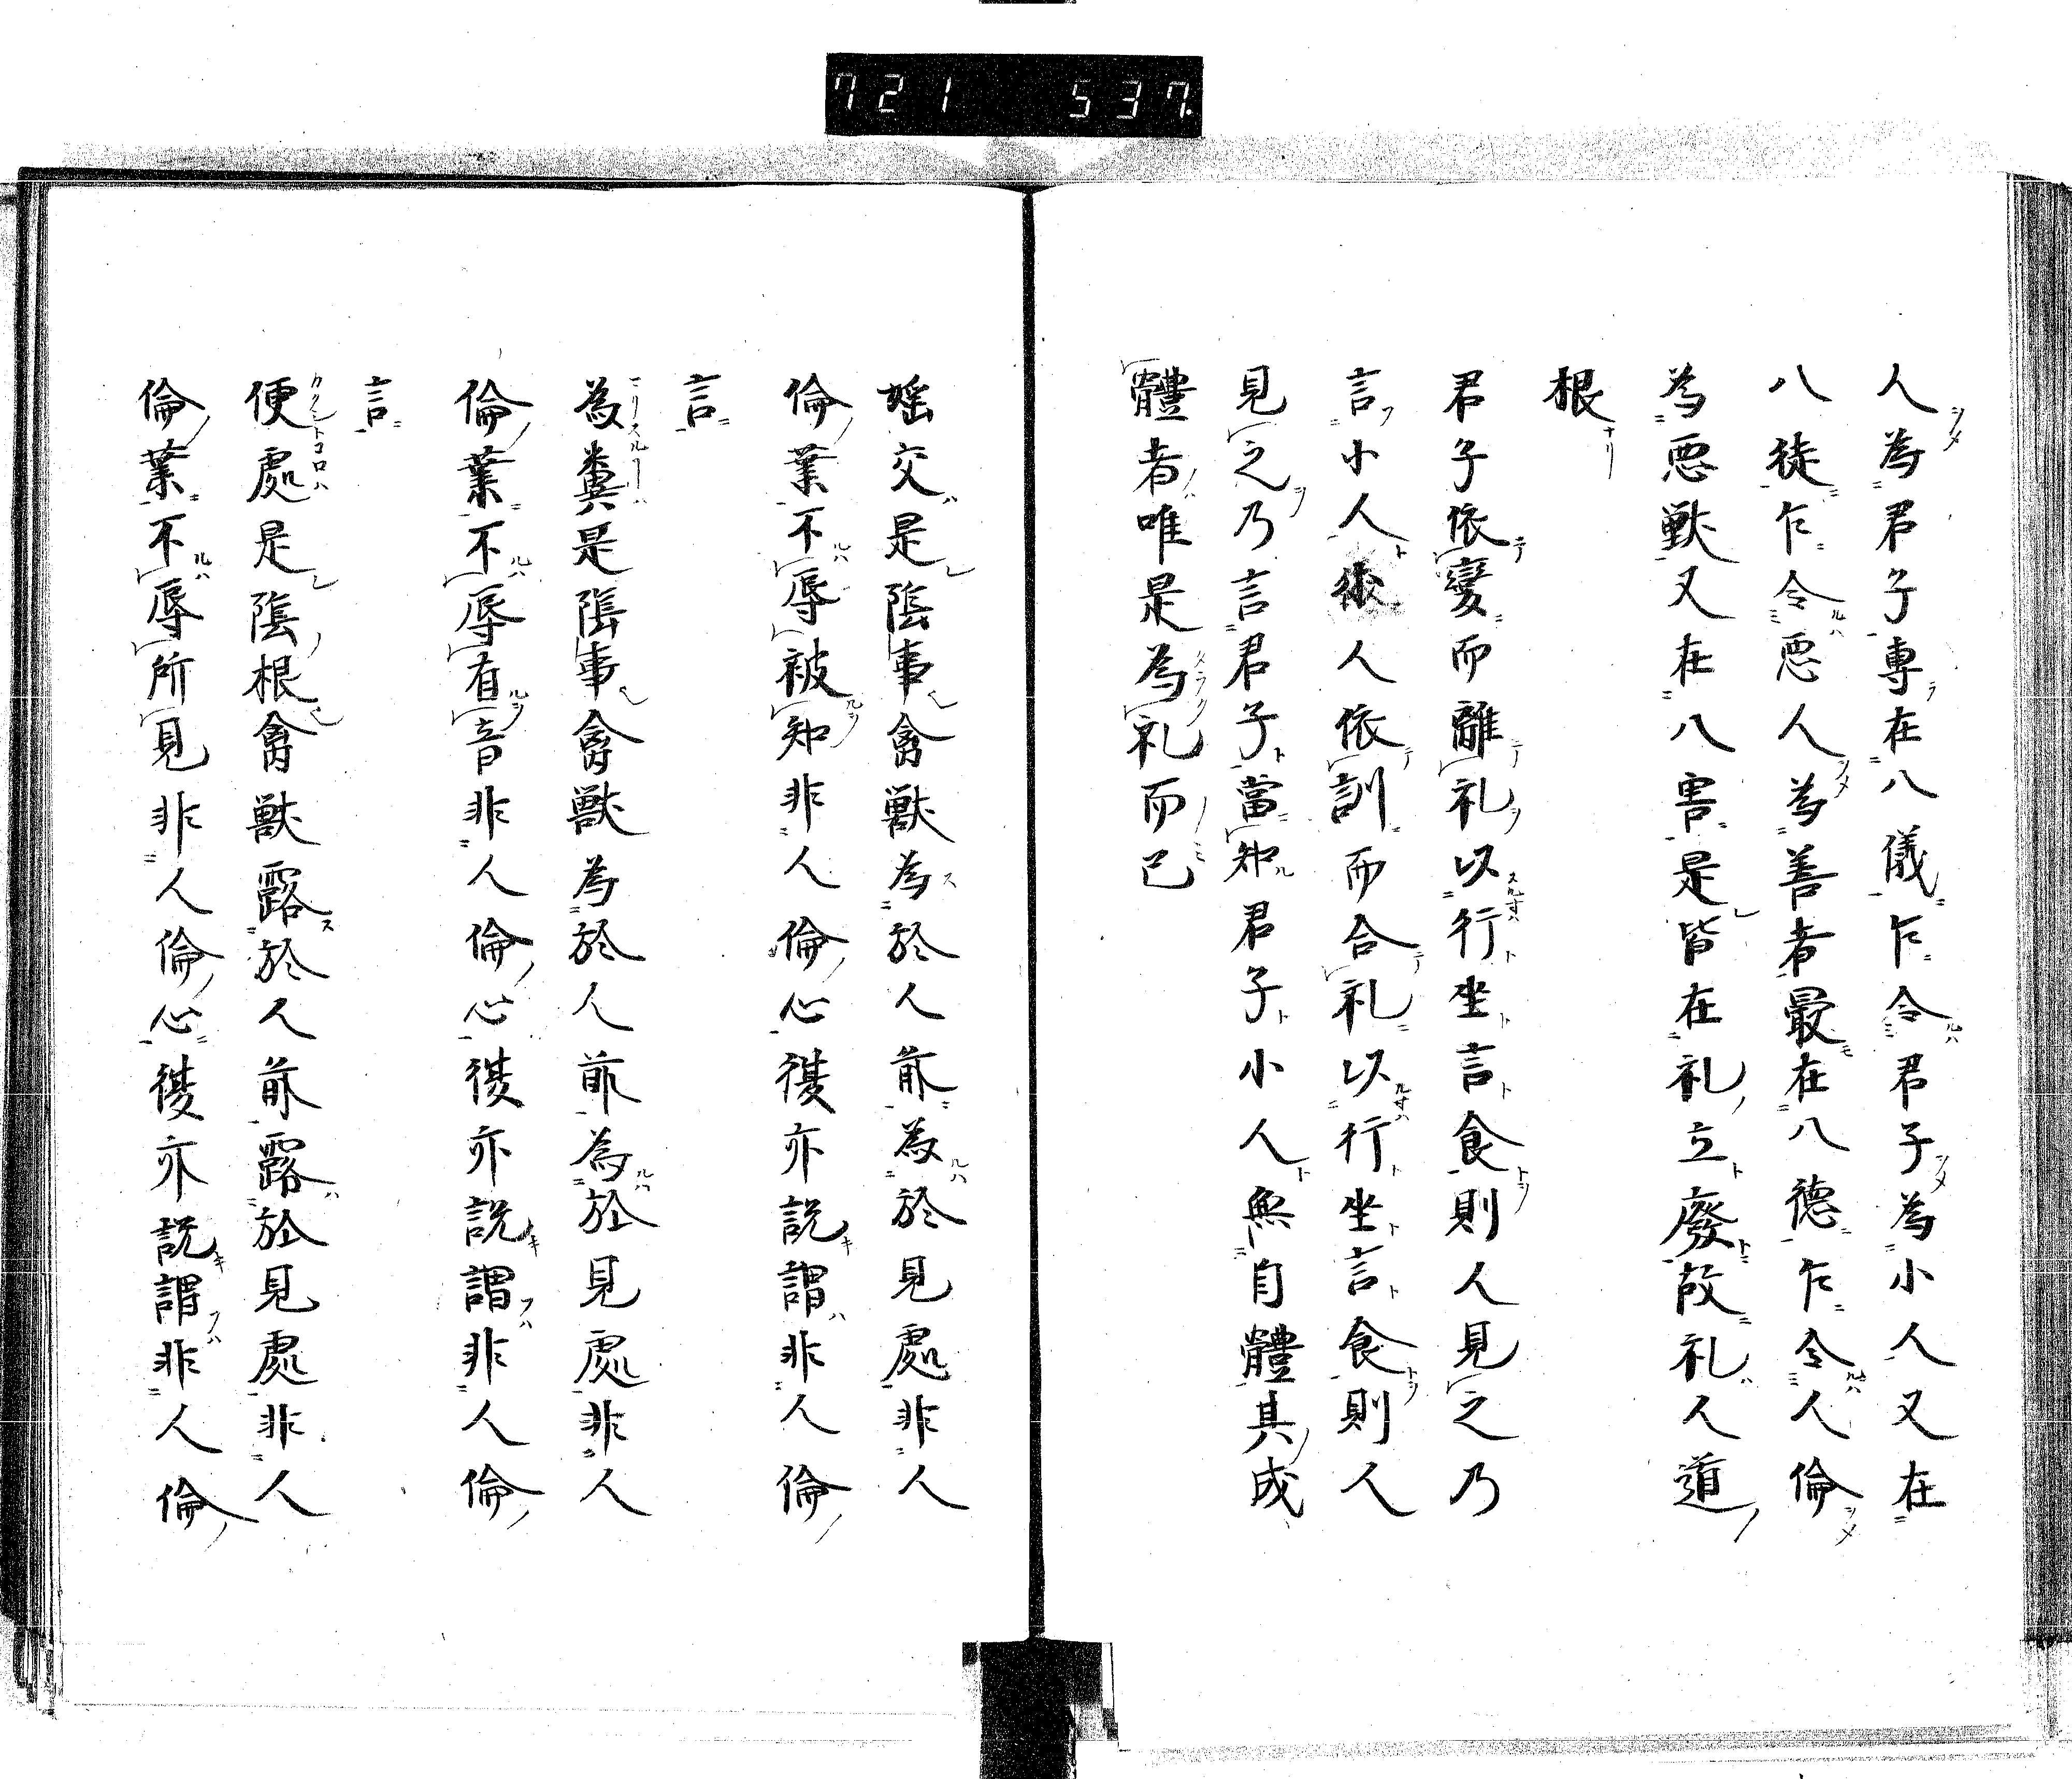 721 537
人為君子專在八儀乍令君子為小人又在
八徒乍令悪人為善者最在八德乍令人倫
為悪獣又在八害是皆在礼立廢故礼人道
根
君子依變而離礼以行坐言食則人見之乃
言小人術人依訓而合礼以行坐言食則人
見之乃言君子當知君子小人無自體其成
體者唯是為礼而已
婬交是陰事禽獣為於人前為於見處非人
倫業不辱被知非人倫心後亦説謂非人倫
言
為糞是陰事禽獣為於人前為於見處非人
倫業不辱有音非人倫心後亦説謂非人倫
言
便處是陰根禽獣露於人前露於見處非人
倫業不辱所見非人倫心後亦説謂非人倫